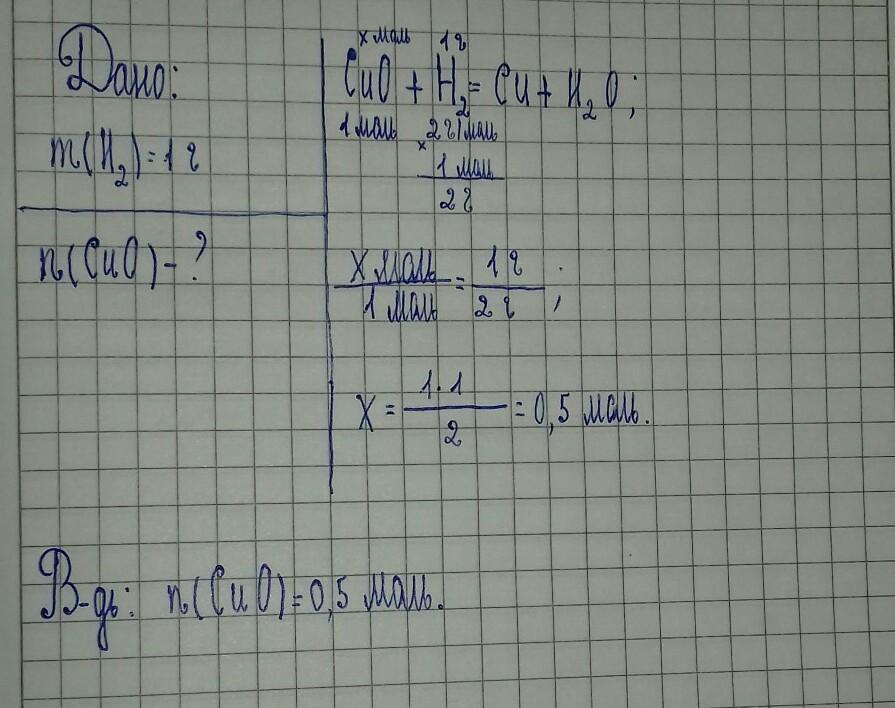 Дано:
m(H₂)=1г
n(CuO)-?
x моль 1г
CuO + H₂ = Cu + H₂O;
1 моль 2г/моль
x
1 моль
2г
x моль / 1 моль = 1г / 2г ;
X = 1·1 / 2 = 0,5 моль.
В-дь: n(CuO)=0,5 моль.